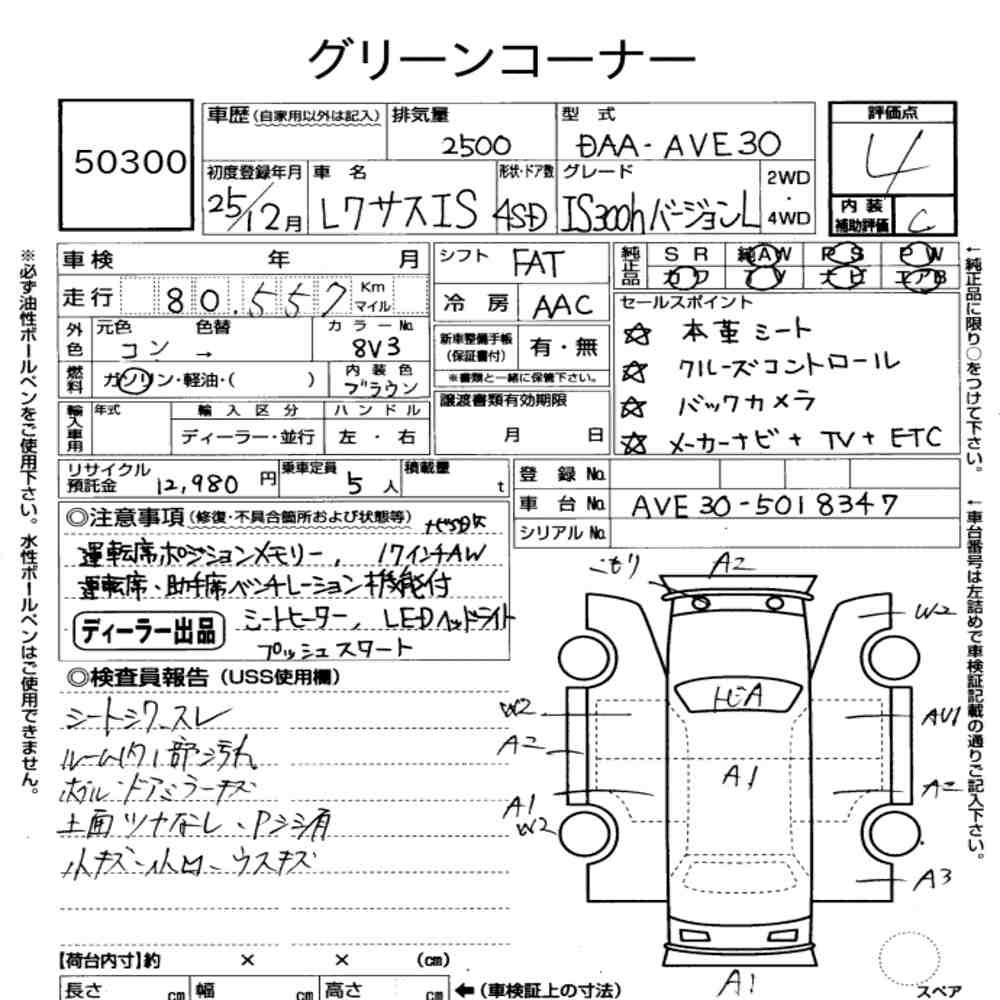 グリーンコーナー
50300
車歴 (自家用以外は記入) 排気量 2500 型式 DAA-AVE30 評価点 4
初度登録年月 25/12月 車名 レクサスIS 形状・ドア数 4SD グレード IS300h バージョンL 2WD・4WD 内装補助評価 C
車検 年 月
走行 80,557 Km マイル
外色 元色 コン → 色替 カラーNo. 8V3
燃料 ガソリン・軽油・( ) 内装色 ブラウン
輸入車用 年式 輸入区分 ディーラー・並行 ハンドル 左・右
シフト FAT
冷房 AAC
新車整備手帳(保証書付) 有・無
※書類と一緒に保管下さい。
譲渡書類有効期限
月 日
純正品 SR 純AW PS PW
カワ TV ナビ エアB
セールスポイント
☆ 本革シート
☆ クルーズコントロール
☆ バックカメラ
☆ メーカーナビ+TV+ETC
リサイクル預託金 12,980円 乗車定員 5人 積載量 t
登録No.
車台No. AVE30-5018347
シリアルNo.
◎注意事項 (修復・不具合箇所および状態等)
運転席ポジションメモリー, 17インチAW
運転席・助手席ベンチレーション機能付
シートヒーター, LEDヘッドライト
ディーラー出品
プッシュスタート
◎検査員報告 (USS使用欄)
シートシワ、スレ
ルーム内1部汚れ
ホイル・ドアミラーキズ
小キズ・小凹、ウスキズ
コモリ
A2
W2
W2
A2
A1
W2
A1
AU1
A2
A3
A1
スペア
【荷台内寸】約 × × (cm)
長さ cm 幅 cm 高さ cm ←(車検証上の寸法)
※必ず油性ボールペンをご使用下さい。水性ボールペンはご使用できません。
←純正品に限り○をつけて下さい。
←車台番号は左詰めで車検証記載の通りご記入下さい。